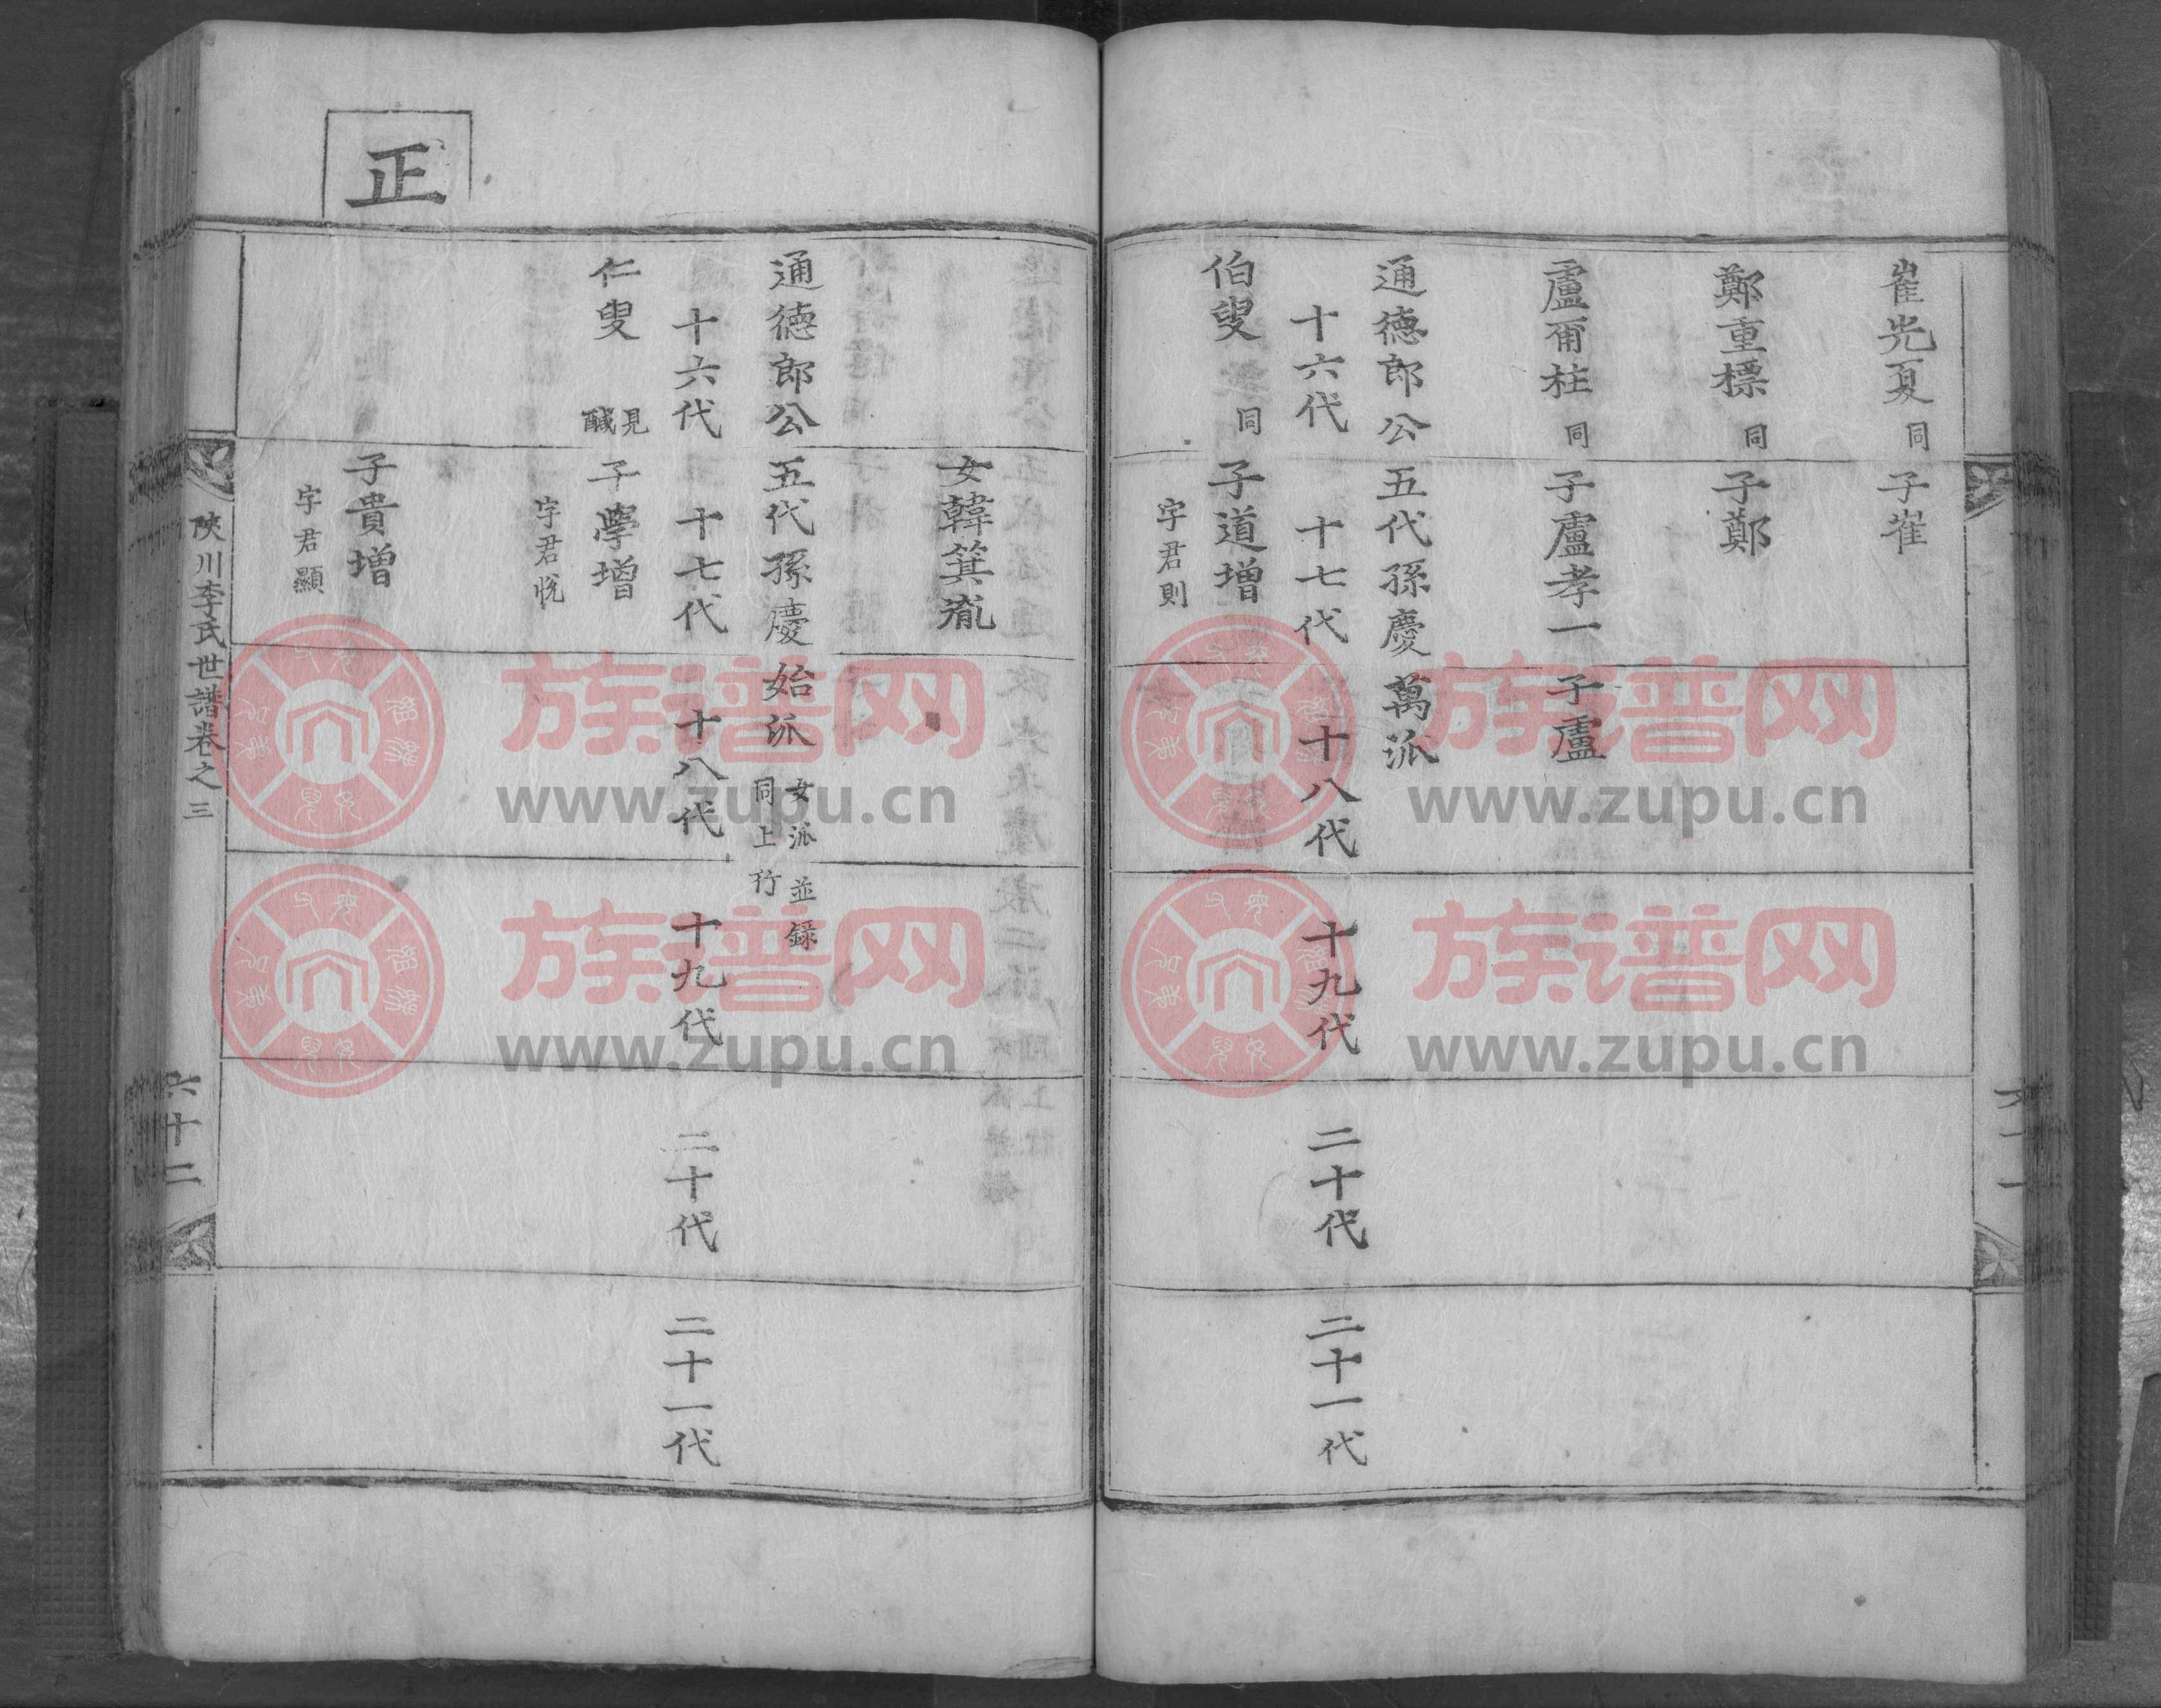 崔光夏 同 子崔
鄭重標 同 子鄭
盧爾柱 同 子盧孝一 子盧
通德郎公 五代孫慶萬派
十六代 十七代 十八代 十九代 二十代 二十一代
伯叟 同 子道增
字君則
女韓箕胤
通德郎公 五代孫慶始派 女派並錄
同上行
十六代 十七代 十八代 十九代 二十代 二十一代
仁叟 見
醎 子學增
字君悅
子貴增
字君顯
正
陜川李氏世譜卷之三 六十二
族谱网
www.zupu.cn
族谱网
www.zupu.cn
族谱网
www.zupu.cn
族谱网
www.zupu.cn